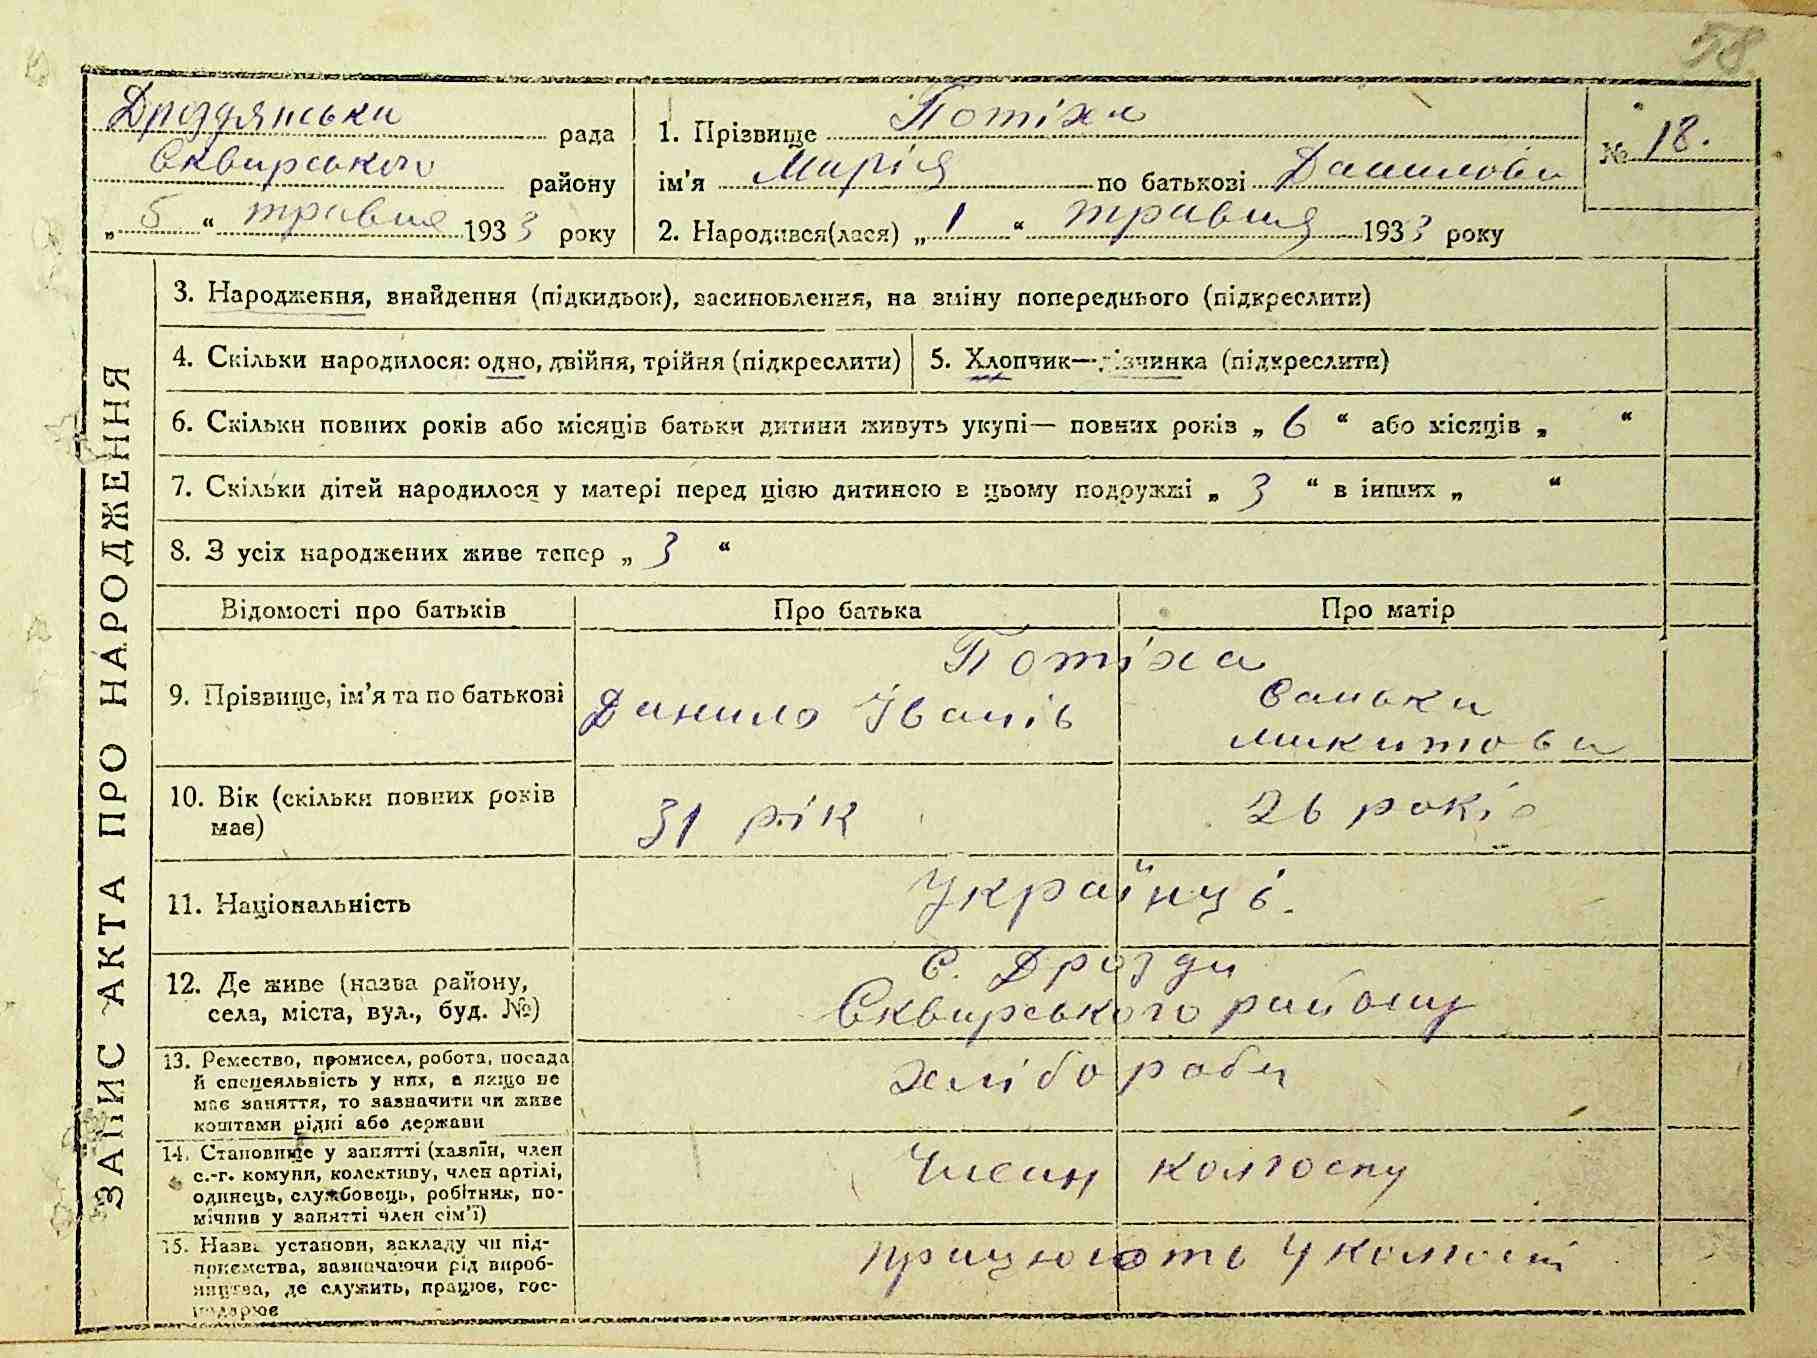 58
Дроздянська рада
Сквирського району
„ 5 “ травня 1933 року
1. Прізвище Потіха
ім'я Марія по батькові Данилова
2. Народився(лася) „ 1 “ травня 1933 року
№ 18.
ЗАПИС АКТА ПРО НАРОДЖЕННЯ
3. Народження, знайдення (підкидьок), засиновлення, на зміну попереднього (підкреслити)
4. Скільки народилося: одно, двійня, трійня (підкреслити)
5. Хлопчик—дівчинка (підкреслити)
6. Скільки повних років або місяців батьки дитини живуть укупі— повних років „ 6 “ або місяців „ “
7. Скільки дітей народилося у матері перед цією дитиною в цьому подружжі „ 3 “ в інших „ “
8. З усіх народжених живе тепер „ 3 “
Відомості про батьків Про батька Про матір
9. Прізвище, ім'я та по батькові
Потіха
Данило Іванів
Ганька
Микитова
10. Вік (скільки повних років
має)
31 рік
26 років
11. Національність
Українці.
12. Де живе (назва району,
села, міста, вул., буд. №)
С. Дрозди
Сквирського району
13. Ремество, промисел, робота, посада
й спецеяльність у них, а якщо не
має заняття, то зазначити чи живе
коштами рідні або держави
хлібороби
14. Становище у занятті (хазяїн, член
с.-г. комуни, колективу, член артілі,
одинець, службовець, робітник, по-
мічнив у занятті член сім'ї)
Член колгоспу
15. Назва установи, закладу чи під-
приємства, зазначаючи рід вироб-
ництва, де служить, працює, гос-
подарює
працюють у колгоспі